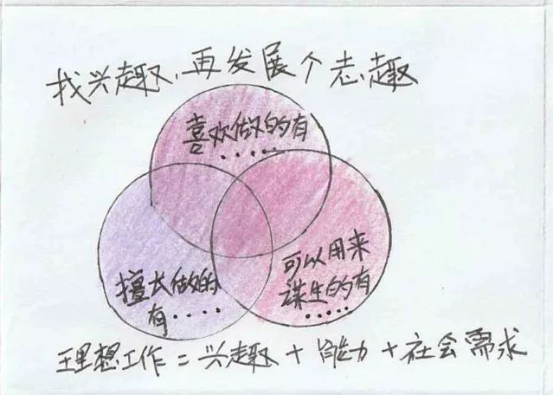 找兴趣,再发展个志趣
喜欢做的有
.....
擅长做的
有....
可以用来
谋生的有
.....
理想工作=兴趣+能力+社会需求